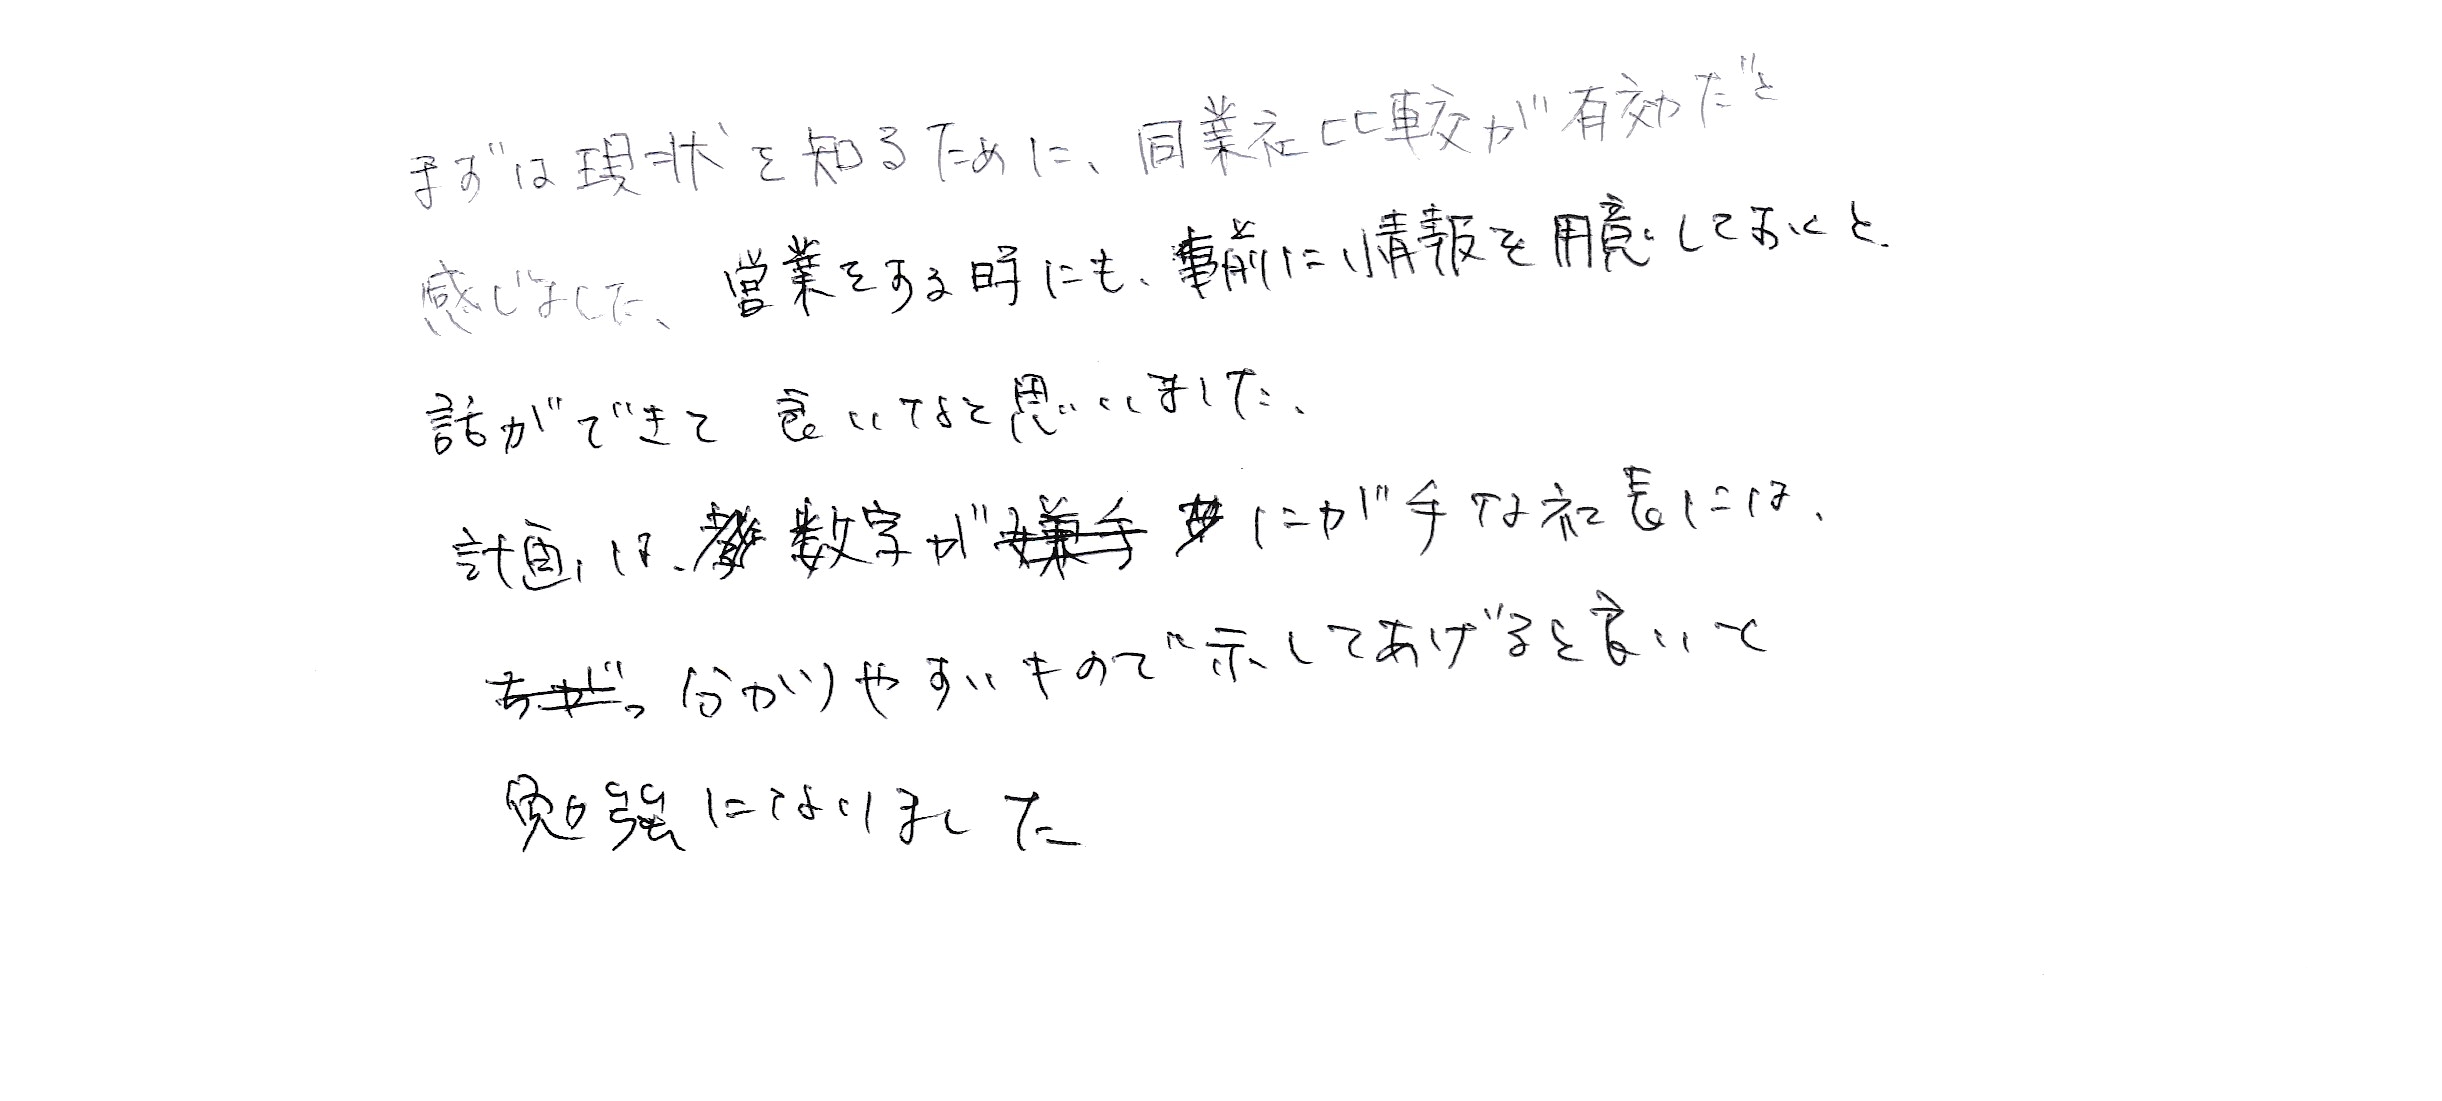 まずは現状を知るために、同業社比較が有効だと
感じました、営業をする時にも、事前に情報を用意しておくと、
話ができて 良いなと思いました、
計画は、数字が にが手な社長には、
分かりやすいもので示してあげると良いと
勉強になりました